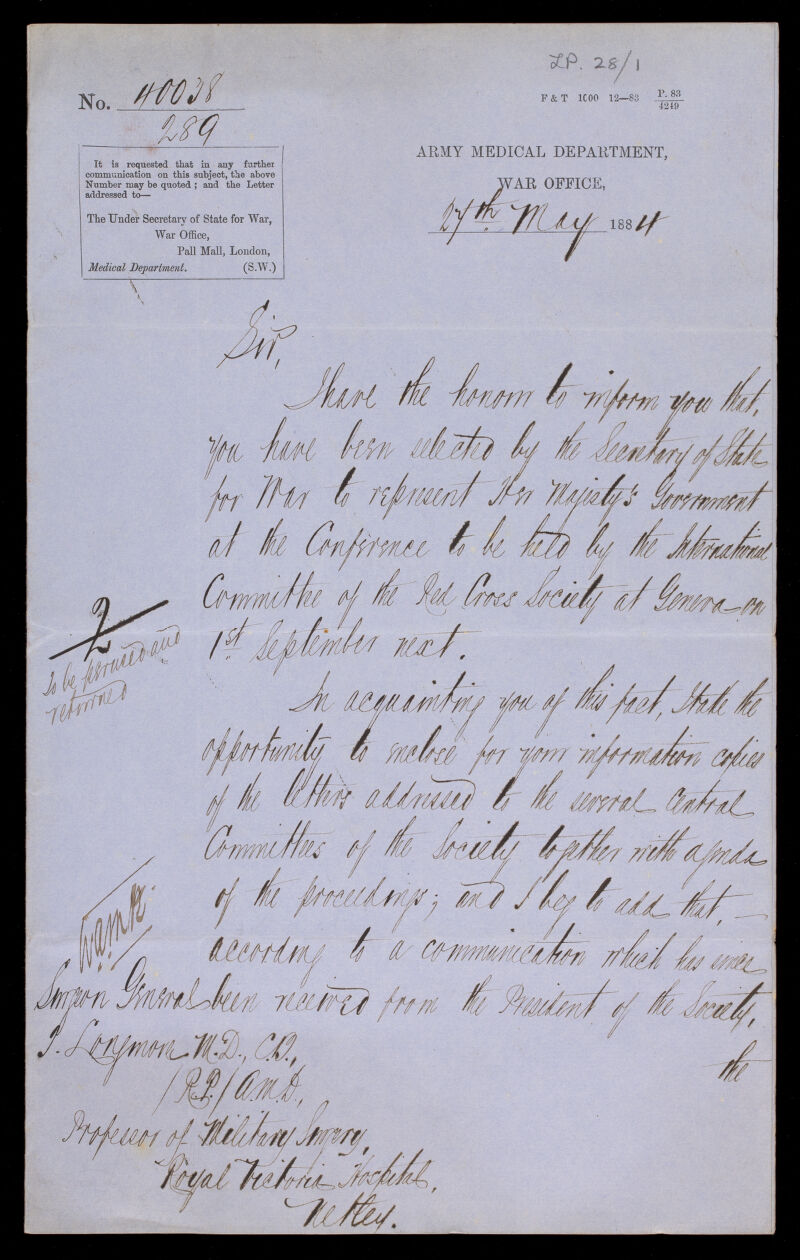 LP. 28/1
No. 40038
289
F & T 1000 12—83 P. 83
4249
It is requested that in any further
communication on this subject, the above
Number may be quoted; and the Letter
addressed to—
The Under Secretary of State for War,
War Office,
Pall Mall, London,
Medical Department. (S.W.)
ARMY MEDICAL DEPARTMENT,
WAR OFFICE,
27th May 1884
Sir,
I have the honour to inform you that,
you have been selected by the Secretary of State
for War to represent Her Majesty's Government
at the Conference to be held by the International
Committee of the Red Cross Society at Geneva on
1st September next.
2
To be perused and
returned
In acquainting you of this fact, I take the
opportunity to enclose for your information copies
of the letters addressed to the several Central
Committees of the Society together with agenda
of the proceedings; and I beg to add that, —
according to a communication which has since
been received from the President of the Society,
the
Surgeon General
T. Longmore M.D., C.B.,
/R.P./ A.M.D.,
Professor of Military Surgery,
Royal Victoria Hospital,
Netley.